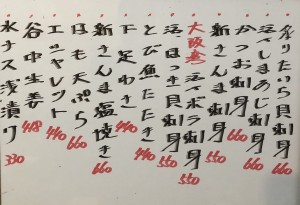 活しまあじ刺身 660
かつお刺身 660
新さんま刺身 550
大阪産 活〆ボラ刺身 550
活ほっき貝刺身 550
とび魚たたき 440
下足わさ 440
新さんま塩焼き 660
はも天ぷら 660
エシャレット 440
谷中生姜 418
水ナス浅漬り 330